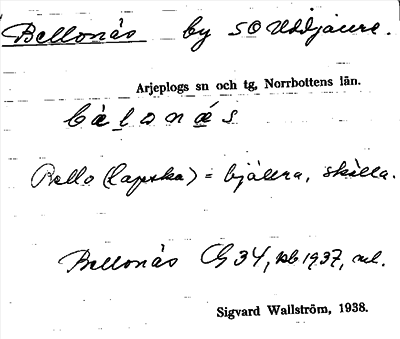 Bellonäs by SO Uddjaure.
Arjeplogs sn och tg, Norrbottens län.
bèlonǽs
Bello (lapska) = bjällra, skälla.
Bellonäs G 34, kb 1937, ml.
Sigvard Wallström, 1938.